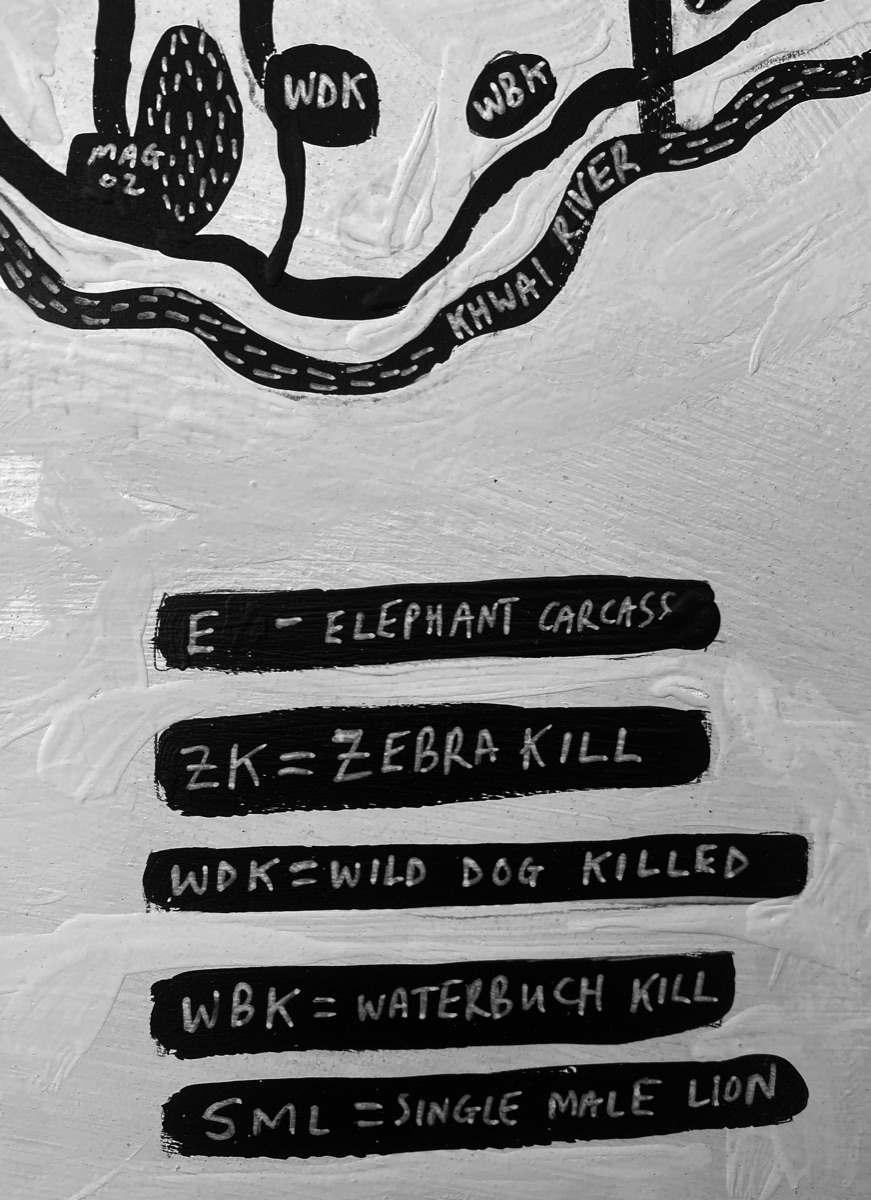 WDK
WBK
MAG
02
KHWAI RIVER
E - ELEPHANT CARCASS
ZK = ZEBRA KILL
WDK = WILD DOG KILLED
WBK = WATERBUCH KILL
SML = SINGLE MALE LION